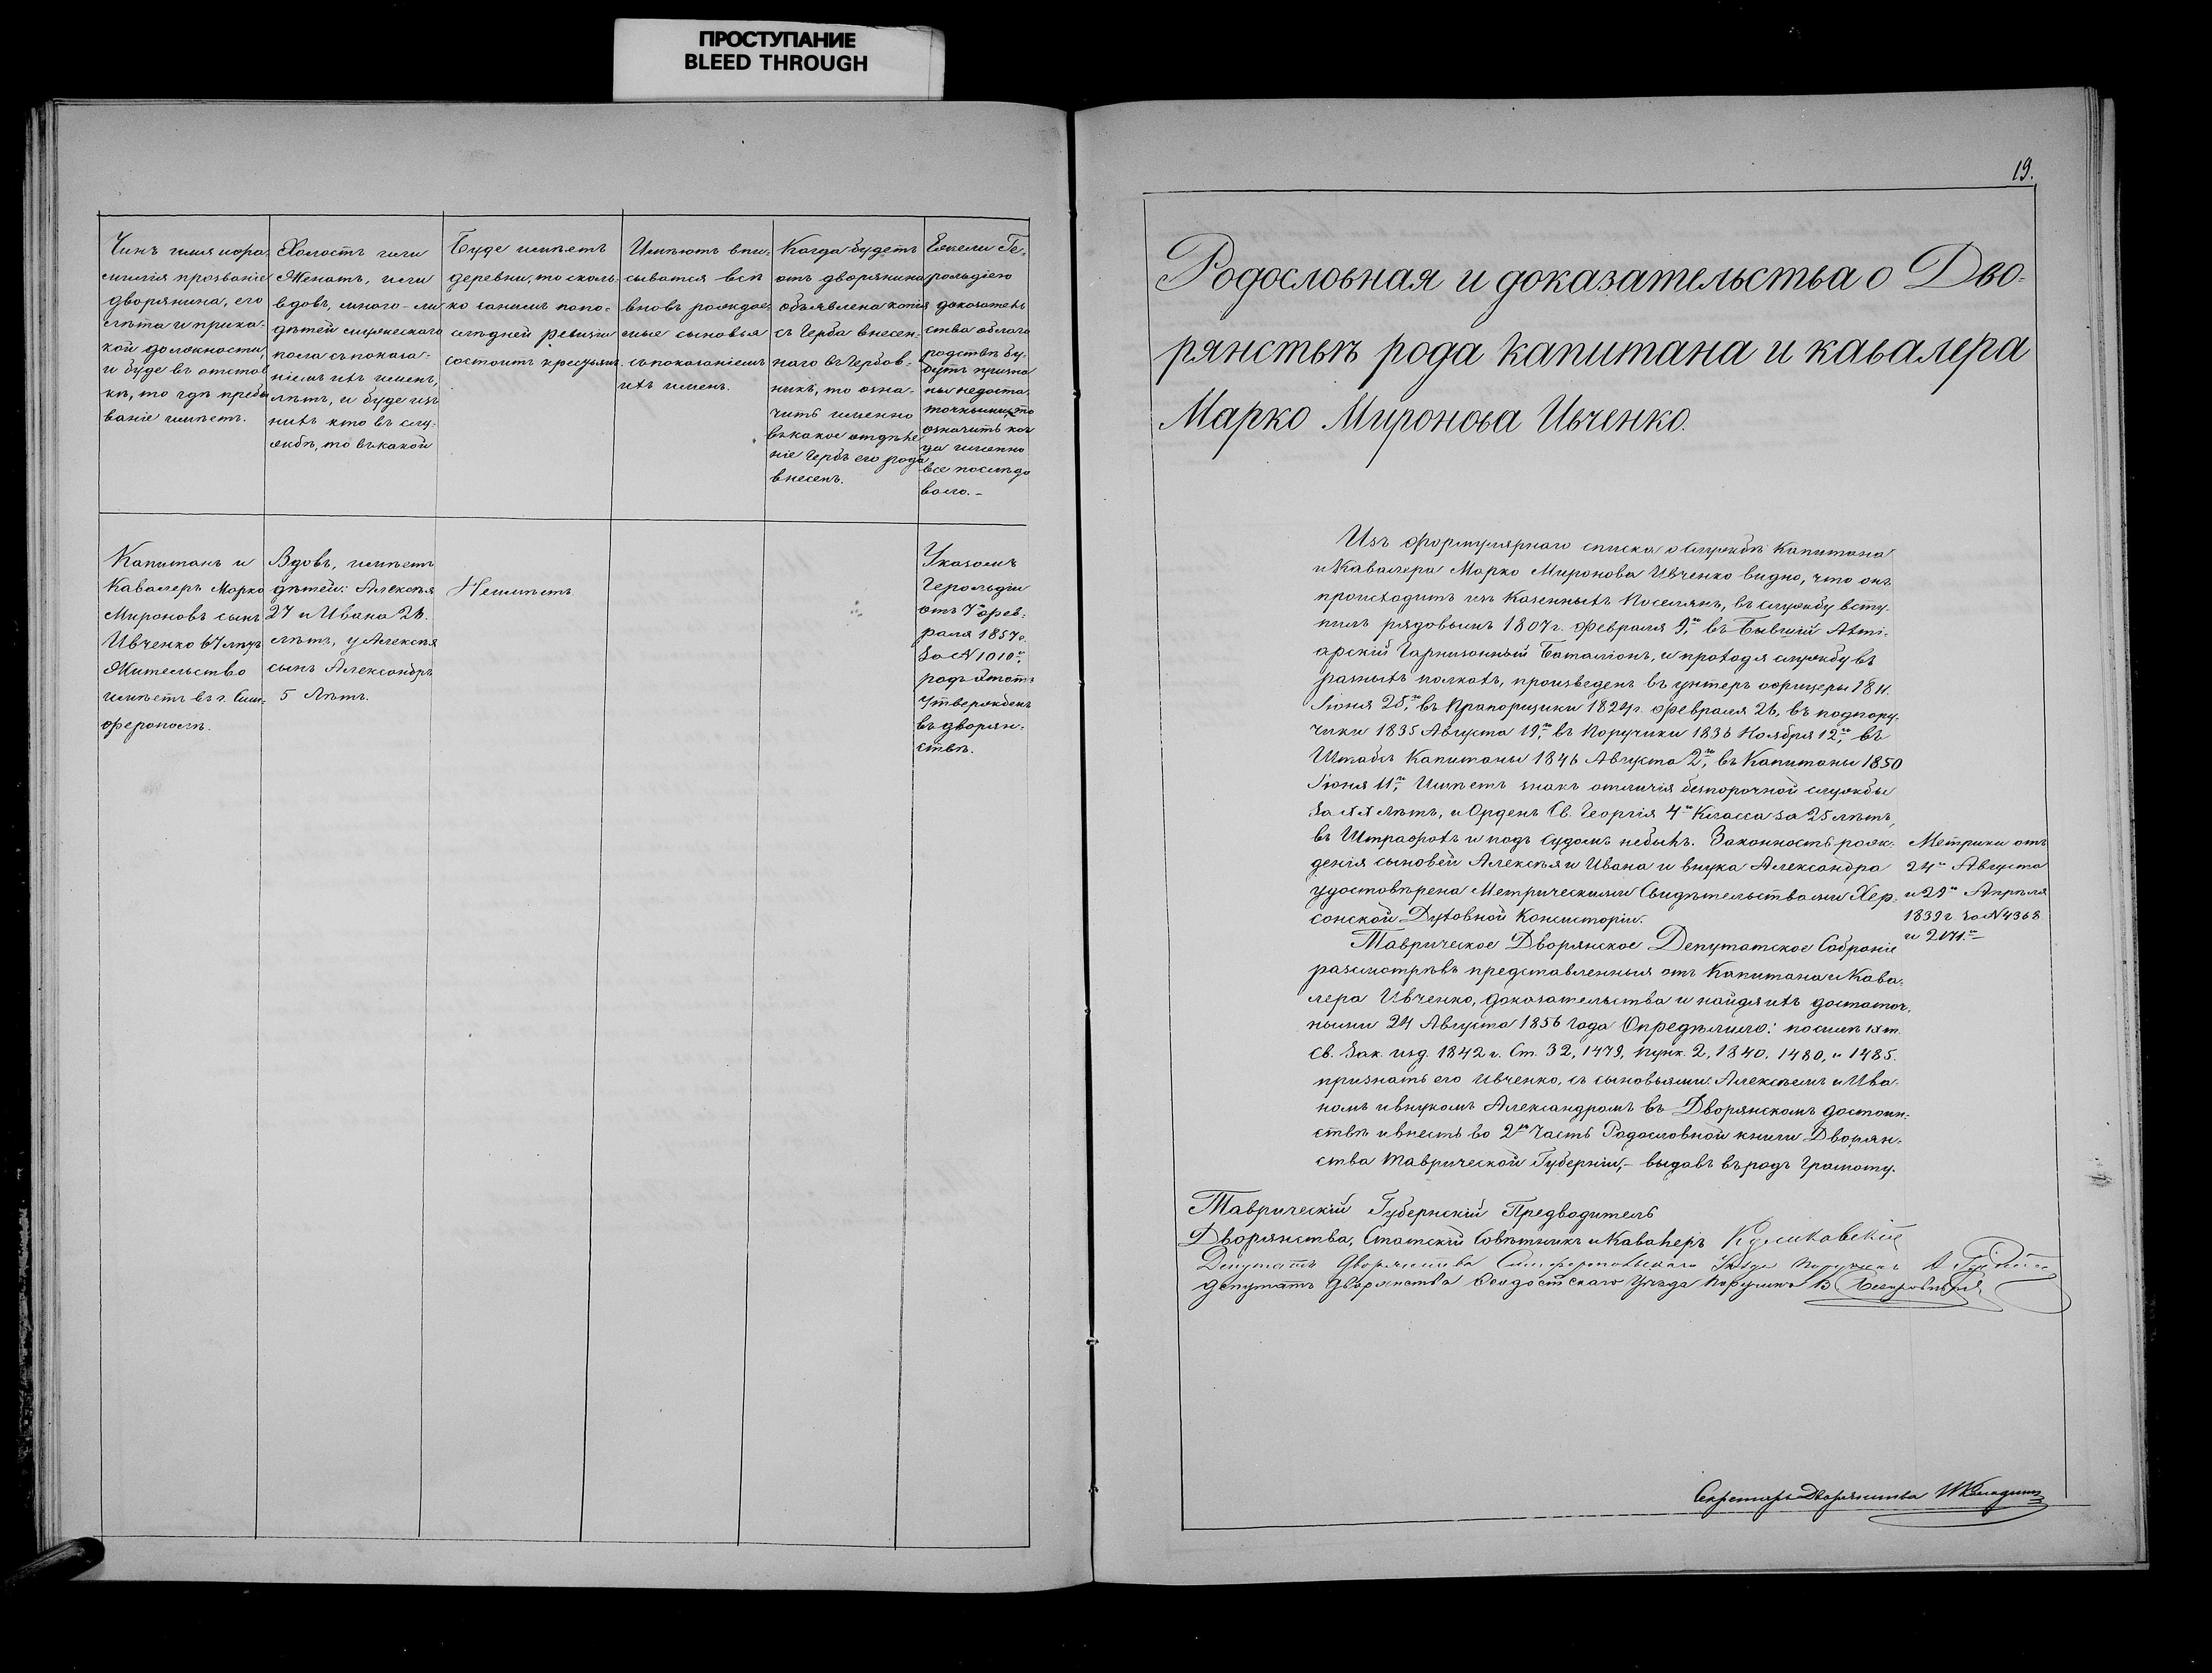 ПРОСТУПАНИЕ
BLEED THROUGH
Чинъ имя и фа-
милія прозваніе
дворянина, его
лѣта и при ка-
кой должности,
и буде въ отстав
кѣ, то гдѣ пребы
ваніе имѣетъ.
Холостъ или
Женатъ, или
вдовъ, много-ли
дѣтей мужескаго
пола съ показа-
ніемъ ихъ именъ,
лѣтъ, и буде изъ
нихъ кто въ слу-
жбѣ, то въ какой
Буде имѣетъ
деревни, то сколь-
ко за нимъ по по-
слѣдней ревизіи
состоитъ крестьянъ.
Имѣютъ впи-
сыватся всѣ
вновь рождае-
мые сыновья
съ показаніемъ
ихъ именъ.
Когда будетъ
отъ дворянина
объявлена копія
съ Герба внесен-
наго въ Гербов-
никъ, то озна-
чить именно
въ какое отдѣле
ніе Гербъ его рода
внесенъ.
Ежели Ге-
рольдіею
доказатель
ства о благо
родствѣ бу-
дутъ призна
ны недоста
точными, то
означить ког
да именно
все послѣдо
вало.-
Капитанъ и
Кавалеръ Марко
Мироновъ сынъ
Ивченко 67 лѣтъ
Жительство
имѣетъ въ г. Сим-
ферополѣ.
Вдовъ, имѣетъ
дѣтей: Алексѣя
27 и Ивана 26.
лѣтъ, у Алексѣя
сынъ Александръ
5 лѣтъ.
Неимѣетъ
Указомъ
Герольдіи
отъ 7го Фев-
раля 1857г.
за N 1010мъ,
родъ этотъ
утвержденъ
въ дворян-
ствѣ.
19.
Родословная и доказательства о Дво-
рянствѣ рода капитана и кавалера
Марко Миронова Ивченко.
Изъ формулярнаго списка о службѣ Капитана
и Кавалера Марко Миронова Ивченко видно, что онъ
происходитъ изъ Казенныхъ Поселянъ, въ службу всту-
пилъ рядовымъ 1807г. Февраля 9го, въ бывшій Ахті-
арскій Гарнизонный Баталіонъ, и проходя службу въ
разныхъ полкахъ, произведенъ въ унтеръ офицеры 1811.
Іюня 25го, въ Прапорщики 1829г. Февраля 26, въ подпору-
чики 1835 Августа 19го, въ Поручики 1836 Ноября 12го, въ
Штабсъ Капитаны 1846 Августа 2го, въ Капитаны 1850
Іюня 11го, Имѣетъ знакъ отличія безпорочной службы
за XX лѣтъ, и Орденъ Св. Георгія 4го Класса за 25 лѣтъ,
въ Штрафахъ и подъ судомъ небылъ. Законность рож-
денія сыновей Алексѣя и Ивана и внука Александра
удостовѣрена Метрическими Свидѣтельствами Хер-
сонской Духовной Консисторіи.
Метрики отъ
24го Августа
и 29го Апрѣля
1839г за N 4368
и 2171.мъ
Таврическое Дворянское Депутатское Собраніе
разсмотрѣвъ представленныя отъ Капитана и Кава-
лера Ивченко, доказательства и найдя ихъ достаточ-
ными 24 Августа 1856 года Опредѣлило: по силѣ IX т.
Св. Зак. изд. 1842 г. Ст. 32, 1479, пунк. 2, 1840, 1480, и 1485.
признать его Ивченко, съ сыновьями: Алексѣемъ и Ива-
номъ и внукомъ Александромъ въ Дворянскомъ достоин-
ствѣ и внесть во 2ю Часть Родословной книги Дворян-
ства Таврической Губерніи,- выдавъ въ родъ Грамоту.
Таврическій Губернскій Предводитель
Дворянства, Статскій Совѣтникъ и Кавалеръ
Депутатъ Дворянства Симферопольскаго Уѣзда Поручикъ А.
Депутатъ Дворянства Феодосійскаго Уѣзда Поручикъ В.
Секретарь Дворянства